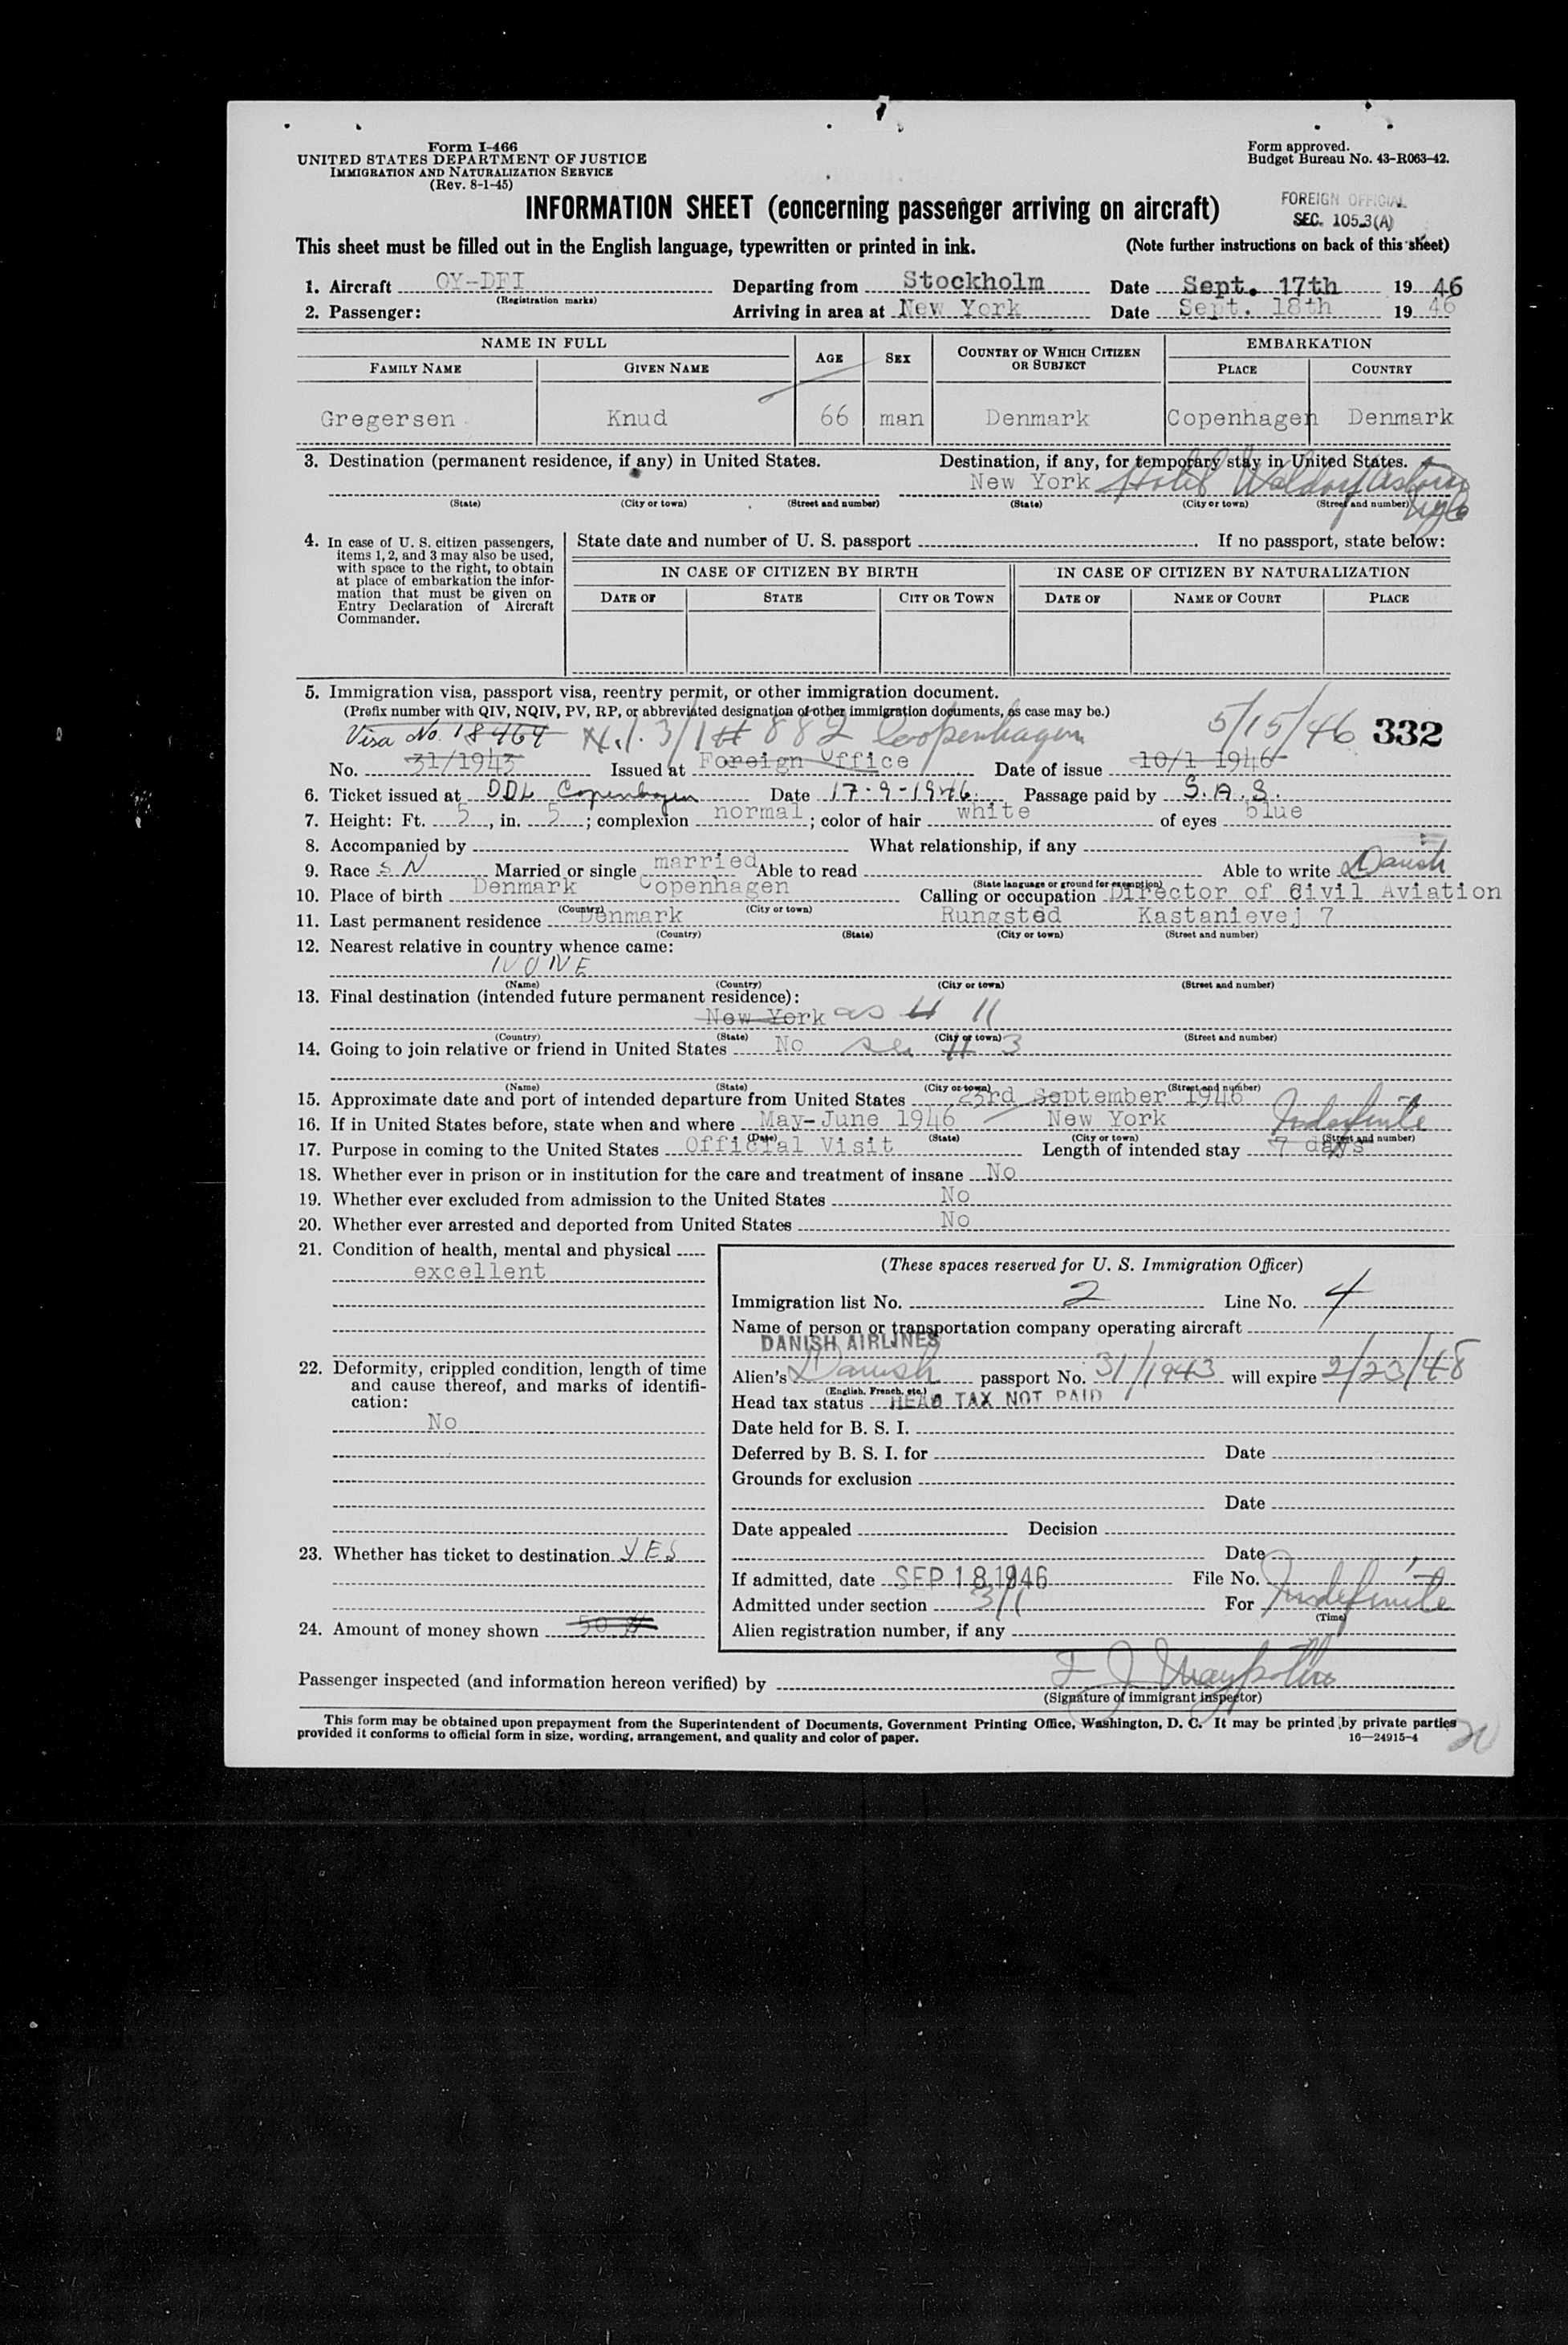 Form I-466
UNITED STATES DEPARTMENT OF JUSTICE
IMMIGRATION AND NATURALIZATION SERVICE
(Rev. 8-1-45)
Form approved.
Budget Bureau No. 43-R063-42.
INFORMATION SHEET (concerning passenger arriving on aircraft)
FOREIGN OFFICIAL
SEC. 105.3(A)
This sheet must be filled out in the English language, typewritten or printed in ink. (Note further instructions on back of this sheet)
1. Aircraft OY-DFI Departing from Stockholm Date Sept. 17th 19 46
(Registration marks)
2. Passenger: Arriving in area at New York Date Sept. 18th 19 46
NAME IN FULL AGE SEX COUNTRY OF WHICH CITIZEN OR SUBJECT EMBARKATION
FAMILY NAME GIVEN NAME PLACE COUNTRY
Gregersen Knud 66 man Denmark Copenhagen Denmark
3. Destination (permanent residence, if any) in United States. Destination, if any, for temporary stay in United States.
New York Hotel Waldorf Astoria
(State) (City or town) (Street and number) (State) (City or town) (Street and number)
4. In case of U. S. citizen passengers, items 1, 2, and 3 may also be used, with space to the right, to obtain at place of embarkation the information that must be given on Entry Declaration of Aircraft Commander.
State date and number of U. S. passport If no passport, state below:
IN CASE OF CITIZEN BY BIRTH IN CASE OF CITIZEN BY NATURALIZATION
DATE OF STATE CITY OR TOWN DATE OF NAME OF COURT PLACE
5. Immigration visa, passport visa, reentry permit, or other immigration document.
(Prefix number with QIV, NQIV, PV, RP, or abbreviated designation of other immigration documents, as case may be.)
Visa No. 18464 3/1 # 882 Copenhagen 5/15/46 332
No. 31/1943 Issued at Foreign Office Date of issue 10/1 1946
6. Ticket issued at DDL Copenhagen Date 17-9-1946. Passage paid by S.A.S.
7. Height: Ft. 5, in. 5; complexion normal; color of hair white of eyes blue
8. Accompanied by What relationship, if any
9. Race S N Married or single married Able to read Able to write Danish
(State language or ground for exemption)
10. Place of birth Denmark Copenhagen Calling or occupation Director of Civil Aviation
(Country) (City or town)
11. Last permanent residence Denmark Rungsted Kastanievej 7
(Country) (State) (City or town) (Street and number)
12. Nearest relative in country whence came:
NONE
(Name) (Country) (City or town) (Street and number)
13. Final destination (intended future permanent residence):
New York as # 11
(Country) (State) (City or town) (Street and number)
14. Going to join relative or friend in United States No # 3
(Name) (State) (City or town) (Street and number)
15. Approximate date and port of intended departure from United States 23rd September 1946
16. If in United States before, state when and where May-June 1946 New York Indefinite
(Date) (State) (City or town) (Street and number)
17. Purpose in coming to the United States Official Visit Length of intended stay 7 days
18. Whether ever in prison or in institution for the care and treatment of insane No
19. Whether ever excluded from admission to the United States No
20. Whether ever arrested and deported from United States No
21. Condition of health, mental and physical
excellent
22. Deformity, crippled condition, length of time and cause thereof, and marks of identification:
No
23. Whether has ticket to destination YES
24. Amount of money shown 50 $
(These spaces reserved for U. S. Immigration Officer)
Immigration list No. 2 Line No. 4
Name of person or transportation company operating aircraft
DANISH AIRLINES
Alien's Danish passport No. 31/1943 will expire 2/23/48
(English, French, etc.)
Head tax status HEAD TAX NOT PAID
Date held for B. S. I.
Deferred by B. S. I. for Date
Grounds for exclusion
Date
Date appealed Decision
Date
If admitted, date SEP 18 1946 File No.
Admitted under section 3/1 For Indefinite
(Time)
Alien registration number, if any
Passenger inspected (and information hereon verified) by
(Signature of immigrant inspector)
This form may be obtained upon prepayment from the Superintendent of Documents, Government Printing Office, Washington, D. C. It may be printed by private parties
provided it conforms to official form in size, wording, arrangement, and quality and color of paper. 16—24915-4